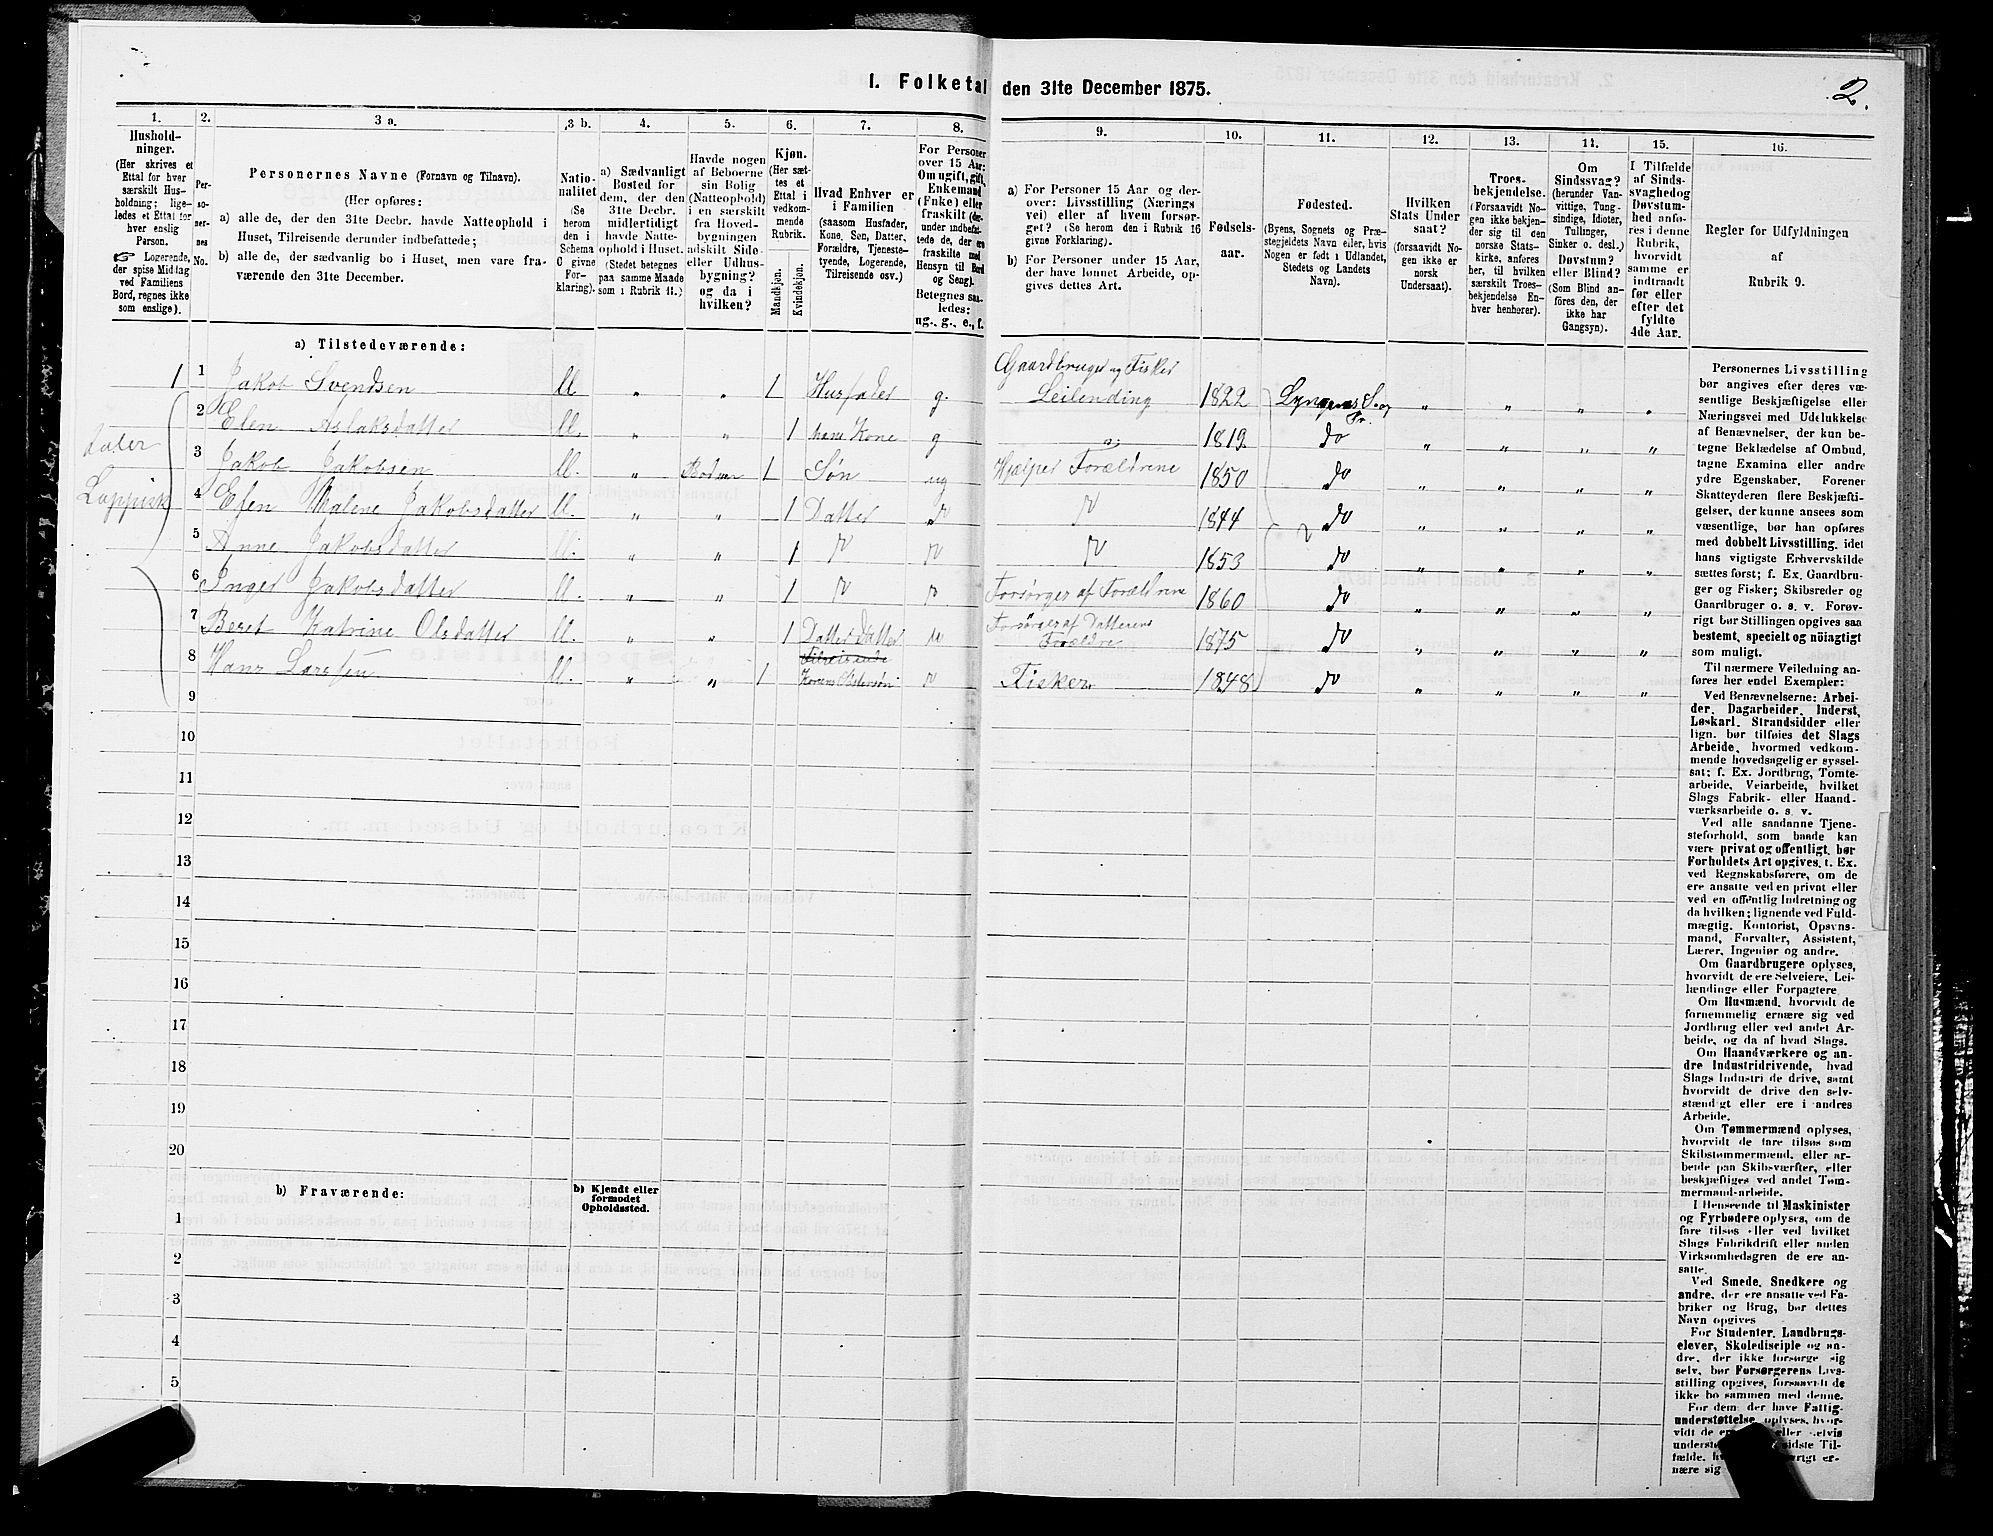 1. Folketal den 31te December 1875.
2.
1.
2.
3 a.
3 b.
4.
5.
6.
7.
8.
9.
10.
11.
12.
13.
14.
15.
16.
Hushold-
ninger.
(Her skrives et
Ettal for hver
særskilt Hus-
holdning; lige-
ledes et Ettal for
hver enslig
Person.
Logerende,
der spise Middag
ved Familiens
Bord, regnes ikke
som enslige).
Per-
so-
ner-
nes
No.
Personernes Navne (Fornavn og Tilnavn).
(Her opføres:
a) alle de, der den 31te Decbr. havde Natteophold i
Huset, Tilreisende derunder indbefattede;
b) alle de, der sædvanlig bo i Huset, men vare fra-
værende den 31te December.
Natio-
nalitet
(Se
herom
den i
Schema
C givne
For-
klaring).
a) Sædvanligt
Bosted for
dem, der den
31te Decbr.
midlertidigt
havde Natte-
ophold i Huset.
(Stedet betegnes
paa samme Maade
som i Rubrik 11.)
Havde nogen
af Beboerne
sin Bolig
(Natteophold)
i en særskilt
fra Hoved-
bygningen
adskilt Side-
eller Udhus-
bygning?
og da i
hvilken?
Kjøn.
(Her sæt-
tes et
Ettal i
vedkom-
mende
Rubrik.
Mandkjøn.
Kvindekjøn.
Hvad Enhver er
i Familien
(saasom Husfader,
Kone, Søn, Datter,
Forældre, Tjeneste-
tyende, Logerende,
Tilreisende osv.)
For Personer
over 15 Aar:
Om ugift, gift,
Enkemand
(Enke) eller
fraskilt (der-
under indbefat-
tede de, der ere
fraskilte med
Hensyn til Bord
og Seng).
Betegnes saa-
ledes:
ug., g., e., f.
a) For Personer 15 Aar og der-
over: Livsstilling (Nærings
vei) eller af hvem forsør-
get? (Se herom den i Rubrik 16
givne Forklaring).
b) For Personer under 15 Aar,
der have lønnet Arbeide, op-
gives dettes Art.
Fødsels-
aar.
Fødested.
(Byens, Sognets og Præ-
stegjeldets Navn eller, hvis
Nogen er født i Udlandet,
Stedets og Landets
Navn).
Hvilken
Stats Under
saat?
(forsaavidt No-
gen ikke er
norsk
Undersaat).
Troes-
bekjendelse.
(Forsaavidt No-
gen ikke bekjen-
der sig til den
norske Stats-
kirke, anføres
her, til hvilken
særskilt Troes-
bekjendelse En-
hver henhører).
Om
Sindssvag?
(herunder Van-
vittige, Tung-
sindige, Idioter,
Tullinger,
Sinker o. desl.)
Døvstum?
eller Blind?
(Som Blind an-
føres den, der
ikke har
Gangsyn).
I Tilfælde
af Sinds-
svaghed og
Døvstum-
hed anfø-
res i denne
Rubrik,
hvorvidt
samme er
indtraadt
før eller
efter det
fyldte
4de Aar.
Regler for Udfyldningen
af
Rubrik 9.
a) Tilstedeværende:
taler
Lappisk
1 1 Jakob Svendsen ll " " 1 Husfader g. Gaardbruger og Fisker
Leilending 1822 Lyngens S. og Pr. " " " "
2 Elen Aslaksdatter ll. " " 1 hans Kone g 1819 do " " " "
3 Jakob Jakobsen ll. " 1 Søn ug Hjælper Forældrene 1850 do " " " "
4 Elen Malene Jakobsdatter ll. " " 1 Datter do do 1844 do " " " "
5 Anne Jakobsdatter ll. " " 1 do do do 1853 do " " " "
6 Inger Jakobsdatter ll. " " 1 do do Forsørges af Forældrene 1860 do " " " "
7 Beret Katrine Olsdatter ll. " " 1 Datter Datter do Forsørges af Datterens
Forældre 1875 do " " " "
8 Hans Larssen ll. " " 1 Tilreisende
Konens Søstersøn do Fisker 1848 do " " " "
9
10
11
12
13
14
15
16
17
18
19
20
b) Fraværende:
b) Kjendt eller
formodet
Opholdssted.
1
2
3
4
5
Personernes Livsstilling
bør angives efter deres væ-
sentlige Beskjæftigelse eller
Næringsvei med Udelukkelse
af Benævnelser, der kun be-
tegne Beklædelse af Ombud,
tagne Examina eller andre
ydre Egenskaber. Forener
Skatteyderen flere Beskjæfti-
gelser, der kunne ansees som
væsentlige, bør han opføres
med dobbelt Livsstilling, idet
hans vigtigste Erhvervskilde
sættes først; f. Ex. Gaardbru-
ger og Fisker; Skibsreder og
Gaardbruger o. s. v. Forøv-
rigt bør Stillingen opgives saa
bestemt, specielt og nöiagtigt
som muligt.
Til nærmere Veiledning an-
føres her endel Exempler:
Ved Benævnelserne: Arbei-
der, Dagarbeider, Inderst,
Løskarl, Strandsidder eller
lign. bør tilføies det Slags
Arbeide, hvormed vedkom-
mende hovedsagelig er syssel-
sat; f. Ex. Jordbrug, Tomte-
arbeide, Veiarbeide, hvilket
Slags Fabrik- eller Haand-
værksarbeide o. s. v.
Ved alle saadanne Tjene-
steforhold, som baade kan
være privat og offentligt, bør
Forholdets Art opgives, t. Ex.
ved Regnskabsførere, om de
ere ansatte ved en privat eller
ved en offentlig Indretning og
da hvilken; lignende ved Fuld-
mægtig, Kontorist, Opsyns-
mand, Forvalter, Assistent,
Lærer, Ingeniør og andre.
Om Gaardbrugere oplyses,
hvorvidt de ere Selveiere, Lei-
lændinge eller Forpagtere
Om Husmænd, hvorvidt de
fornemmelig ernære sig ved
Jordbrug eller ved andet Ar-
beide, og da af hvad Slags.
Om Haandværkere og an-
dre Industridrivende, hvad
Slags Industri de drive, samt
hvorvidt de drive den selv-
stændigt eller ere i andres
Arbeide.
Om Tømmermænd oplyses,
hvorvidt de fare tilsøs som
Skibstømmermænd, eller ar-
beide paa Skibsværfter, eller
beskjæftiges ved andet Tøm-
mermand-arbeide.
I Henseende til Maskinister
og Fyrbødere oplyses, om de
fare tilsøs eller ved hvilket
Slags Fabrikdrift eller anden
Virksomhedsgren de ere an-
satte.
Ved Smede, Snedkere og
andre, der ere ansatte ved Fa-
briker og Brug, bør dettes
Navn opgives
For Studenter, Landbrugs-
elever, Skoledisciple og an-
dre, der ikke forsørge sig
selv, bør Forsørgerens Livs-
stilling opgives, forsaavidt de
ikke bo sammen med denne.
For dem, der have Fattig-
understøttelse, oplyses, hvor-